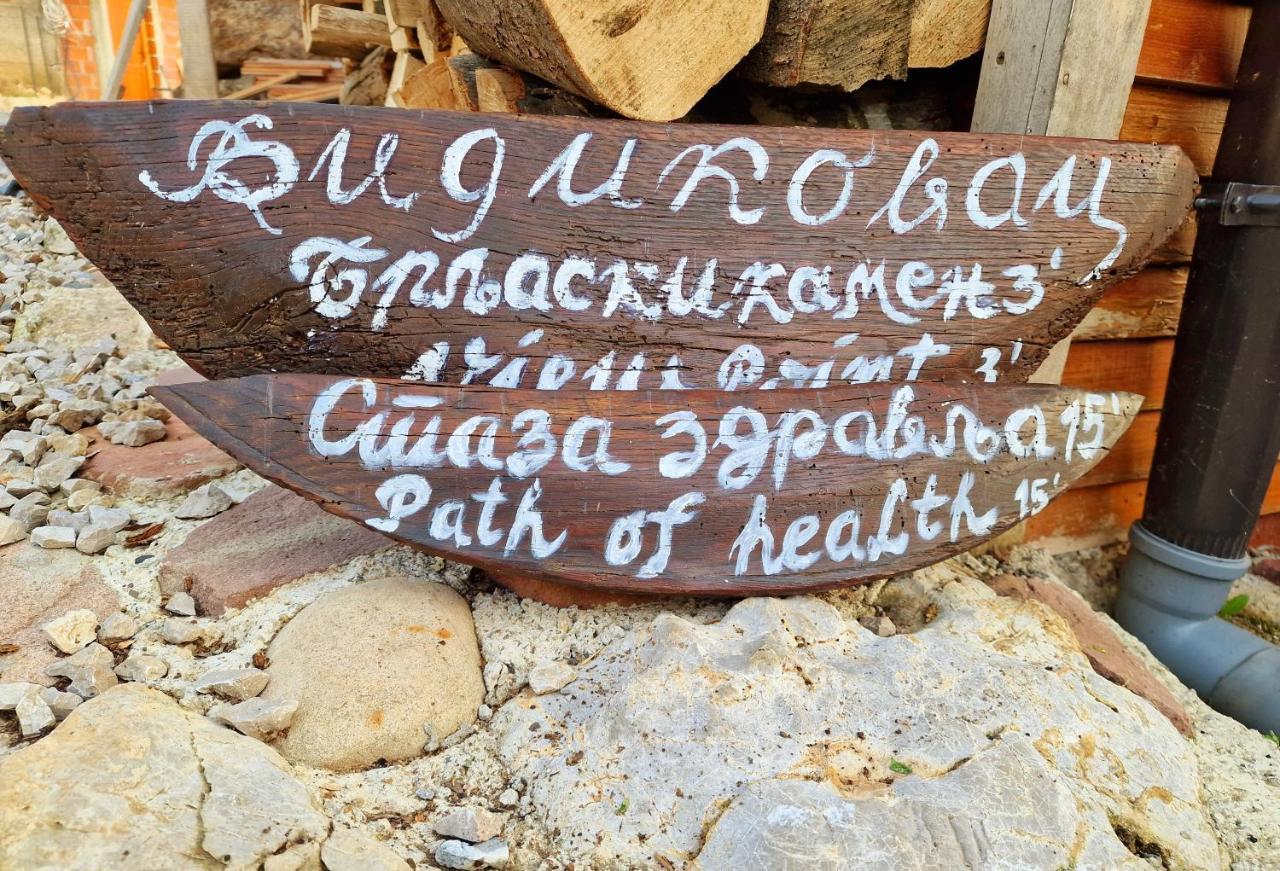 Видиковац
Брљаски камен 3'
View Point 3'
Стаза здравља 15'
Path of health 15'